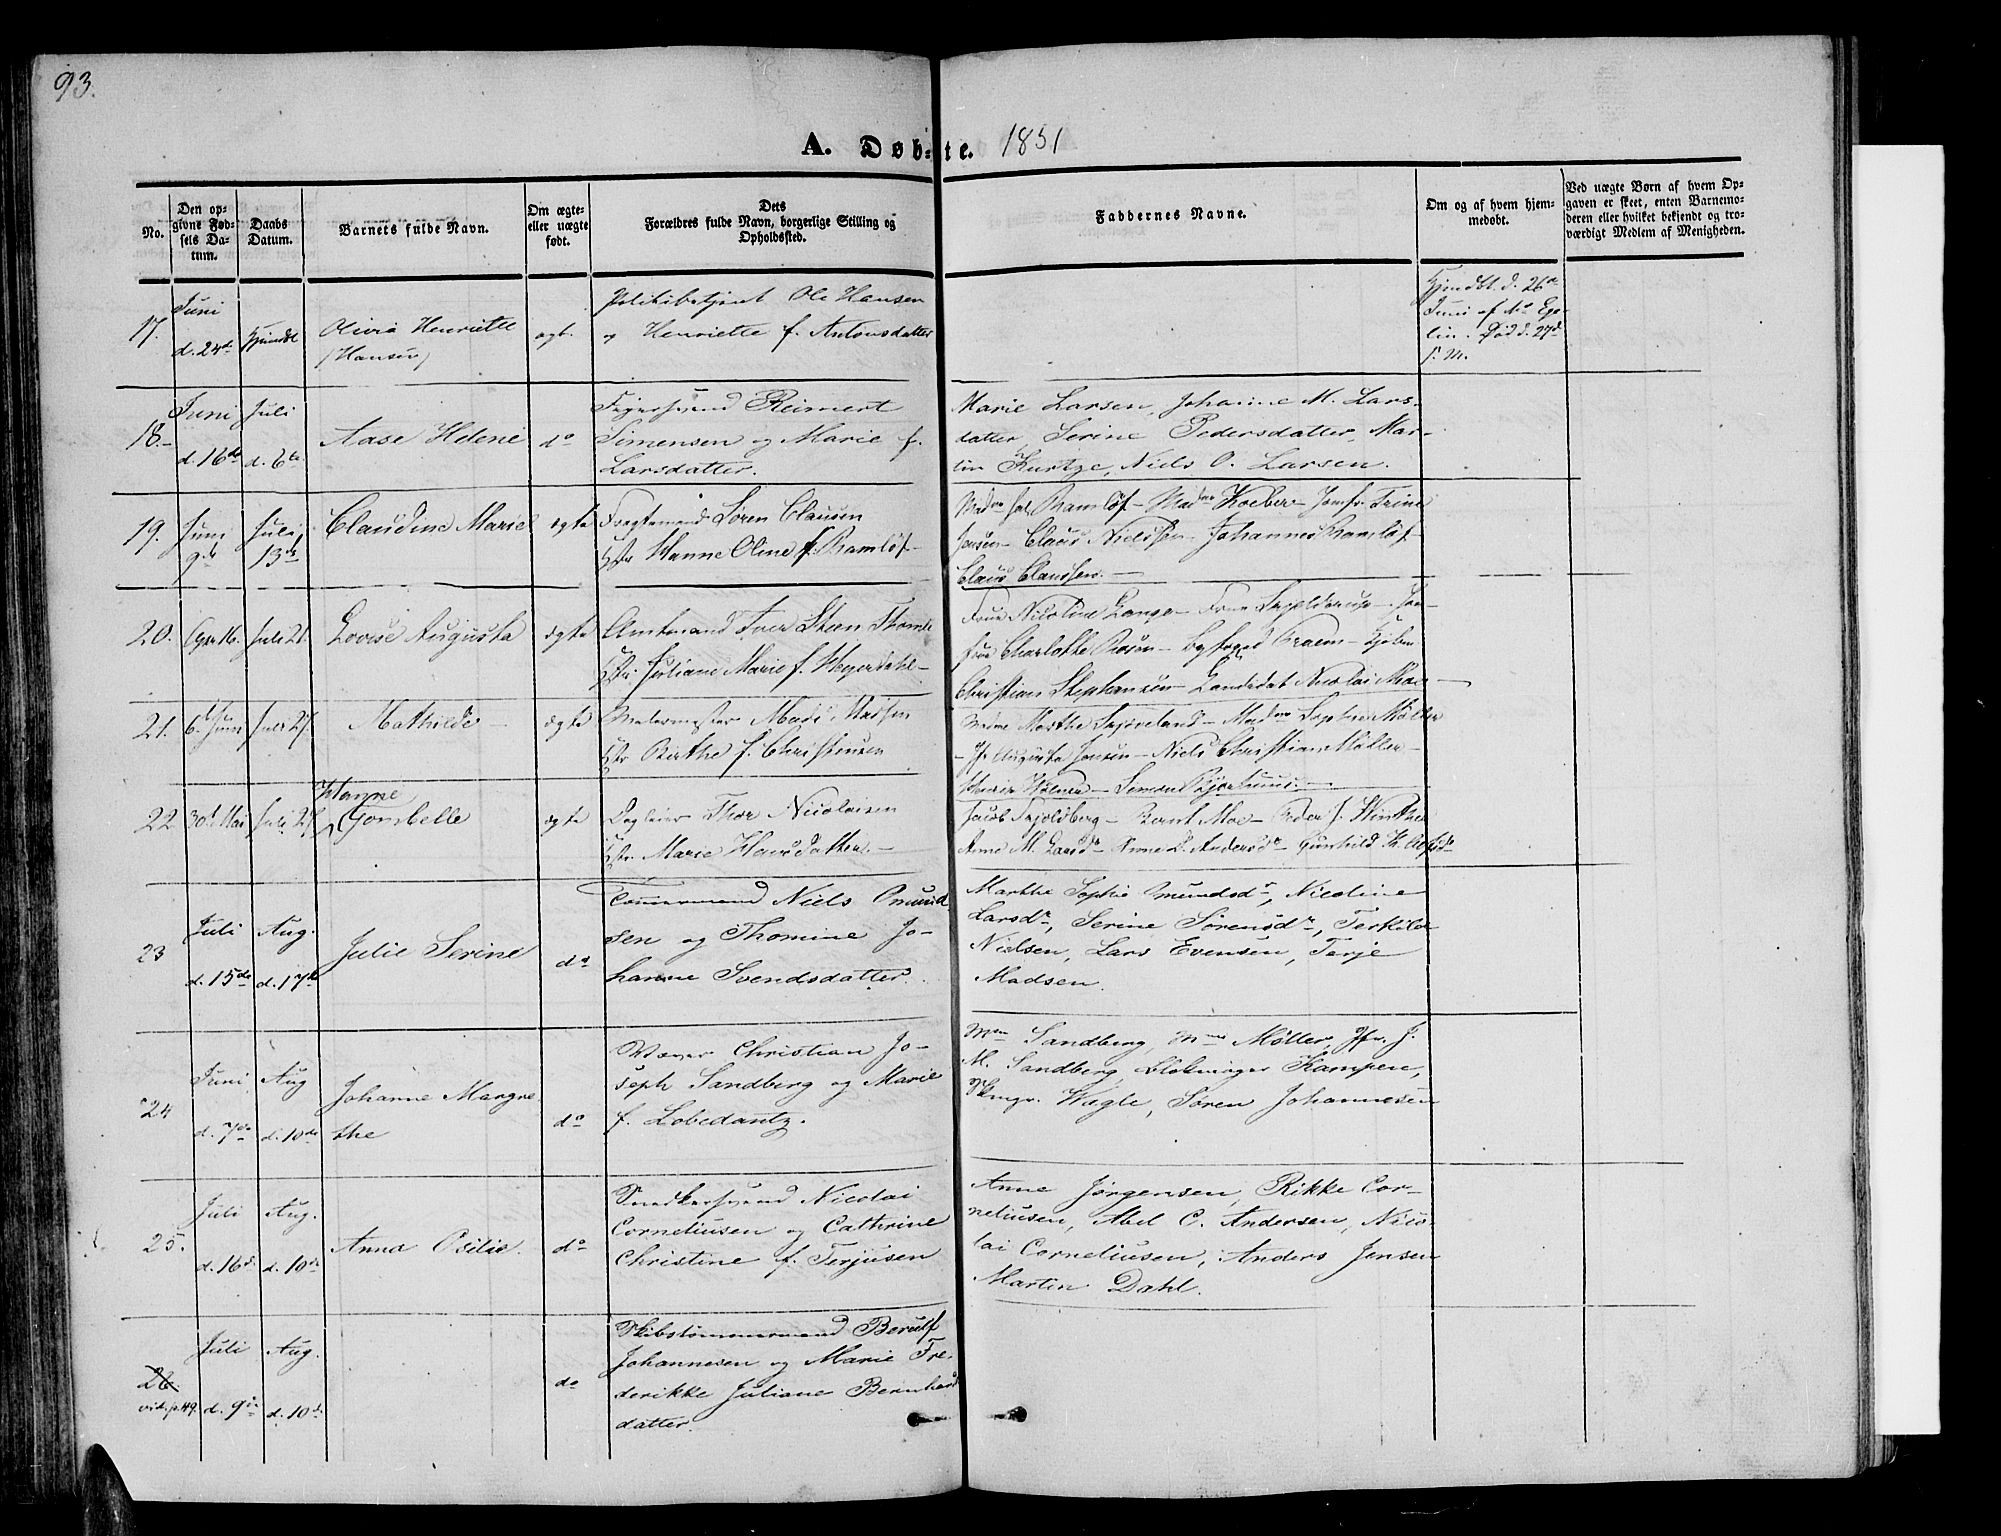 93.
A. Døb-te. 1851
No.
Den op-
givne Fød-
sels Da-
tum.
Daabs
Datum.
Barnets fulde Navn.
Om ægte-
eller uægte
født.
Dets
Forældres fulde Navn, borgerlige Stilling og
Opholdssted.
Faddernes Navne.
Om og af hvem hjem-
medøbt.
Ved uægte Børn af hvem Op-
gaven er skeet, enten Barnemo-
deren eller hvilket bekjendt og tro-
værdigt Medlem af Menigheden.
17.
Juni
d. 24de
Hjemdbt
Olivia Henriette
(Hansen)
ægt.
Politibetjent Ole Hansen
og Henriette f. Antonsdatter
Hjemdbt. d. 26de
Juni af Mo Ege-
lin. Død d. 27d
s. M.
18.-
Juni
d. 16de
Juli
d. 6te
Aase Helene
do
Reimert
Simensen og Marie f.
Larsdatter.
Marie Larsen, Johanne M. Lars-
datter, Serine Pedersdatter, Mar-
tin Kurtze, Niels O. Larsen.
19.
Juni
9de
Juli
13de
Claudine Marie
ægte
Fragtemand Søren Clausen
Hstr Hanne Oline f. Ramløf
Madme Ramløf - Madme Koeber - Jomfr. Trine
Jensen - Claus Nielssen - Johannes Ramløf -
Claus Claussen. -
20.
Apr 16.
Juli 21.
Lovise Augusta
ægte
Amtmand Iver Steen Thomle
Hstr. Juliane Marie f. Heyerdahl -
Frue Nicoline Lange - Frue Skjelderup - Jom-
frue Charlotte Rosen - Byfoged Praem - Kjøbm
Christian Stephansen - Candidat Nicolai Moe -
21.
6. Juni
Juli 27.
Mathilde -
ægte
Malermester Mads Madsen
Hstr Birthe f. Christensen
Mdme Marthe Skjoveland - Madme Sophie Møller
- Jf. Augusta Jensen - Niels Christian Møller -
22
30te Mai
Juli 27.
Hanne
Gombelle
ægte
Dagleier Thor Nicolaisen
Hstr. Marie Hansdatter. -
Jacob Skjoldberg - Bernt Moe - Peder f. Winther
Anne M. Larsdr - Anne L. Andersdr - Gunhild K. Olefsdr
23
Juli
d. 15de
Aug.
d. 17de
Julie Serine
do
Tømmermand Niels Omund
sen og Thomine Jo-
hanne Svendsdatter.
Marthe Sophie Omundsdr, Nicoline
Larsdr, Serine Sørensdr, Terkild
Nielsen, Lars Evensen, Terje
Madsen.
24
Juni
d. 7de
Aug
d. 10de
Johanne Margre
the
do
Væver Christian Jo-
seph Sandberg og Marie
f. Lobedantz.
Mme Sandberg, Mme Møller, Jfr. J.
M. Sandberg, Blokmager Kampen,
Wagle, Søren Johannesen
25.
Juli
d. 16d.
Aug.
d. 10de
Anna Osilie.
do
Snedkersvend Nicolai
Corneliusen og Cathrine
Christine f. Terjusen
Anne Jørgensen, Rikke Cor-
neliusen, Abel C. Andersen, Nico-
lai Corneliusen, Anders Jensen
Martin Dahl.
26
vid. p. 49.
Juli
d. 9de
Aug.
d. 10de
do
Skibstømmermand Berulf
Johannesen og Marie Fre-
derikke Juliane Bernhard
datter.